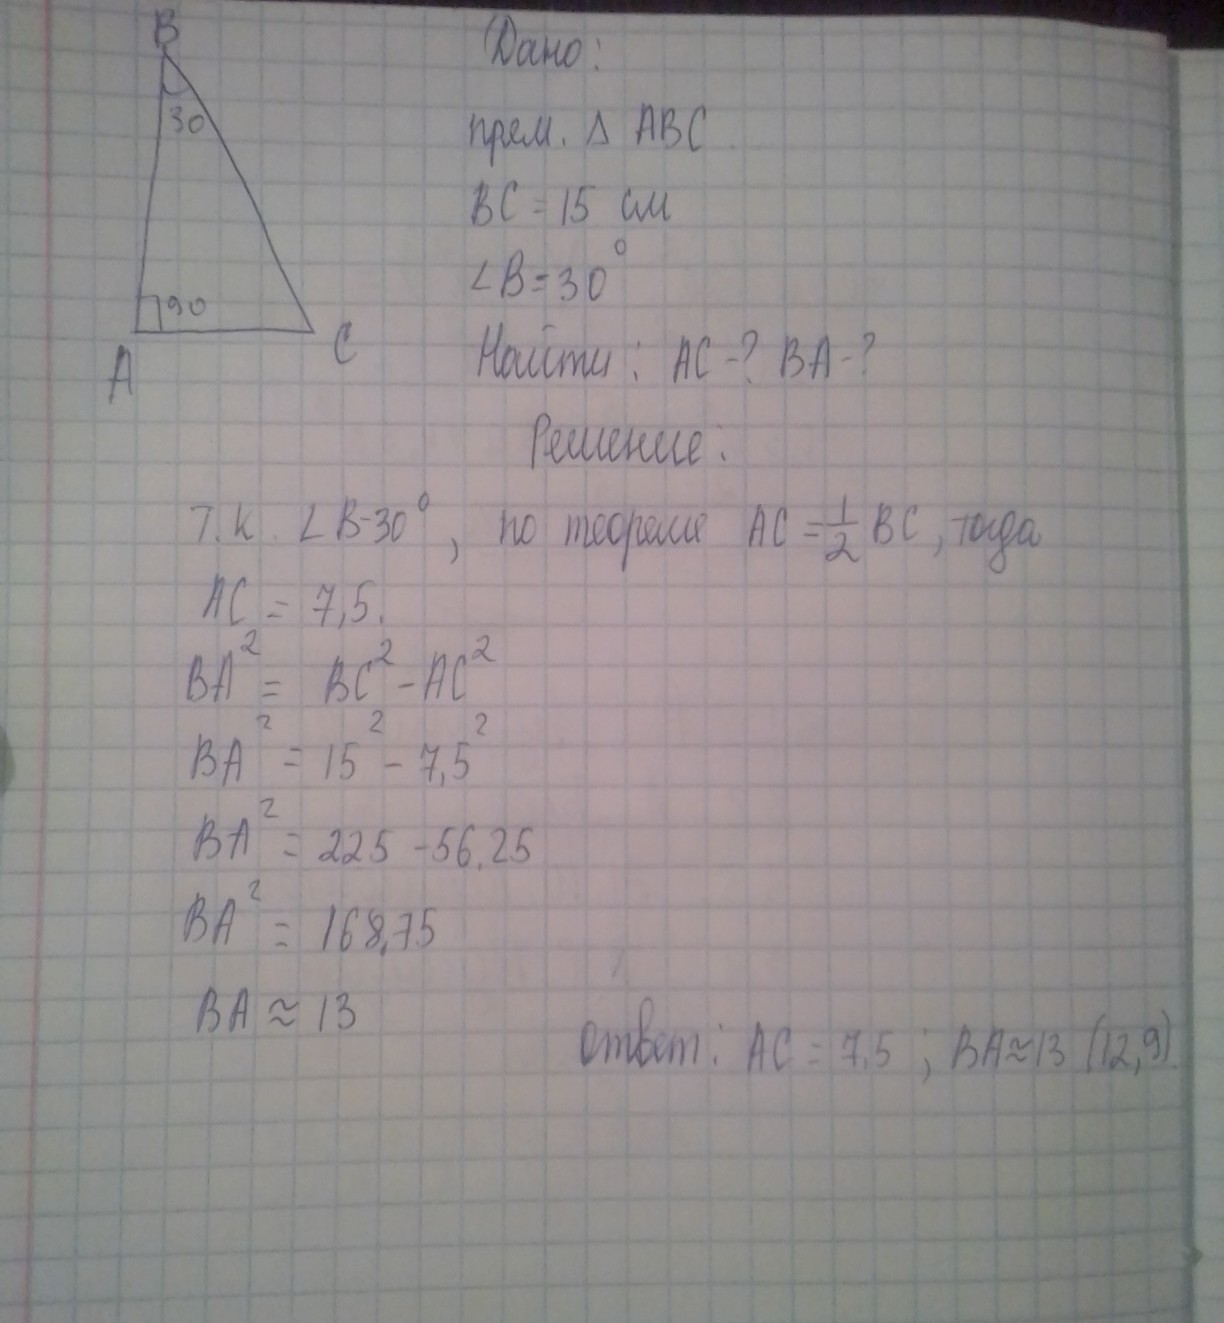 B
30
90
A
C
Дано:
прям. Δ ABC
BC = 15 см
∠B = 30°
Найти: AC -? BA -?
Решение:
Т.к. ∠B-30°, по теореме AC = 1/2 BC, тогда
AC = 7,5.
BA² = BC² - AC²
BA² = 15² - 7,5²
BA² = 225 - 56,25
BA² = 168,75
BA ≈ 13
Ответ: AC = 7,5 ; BA ≈ 13 (12,9)